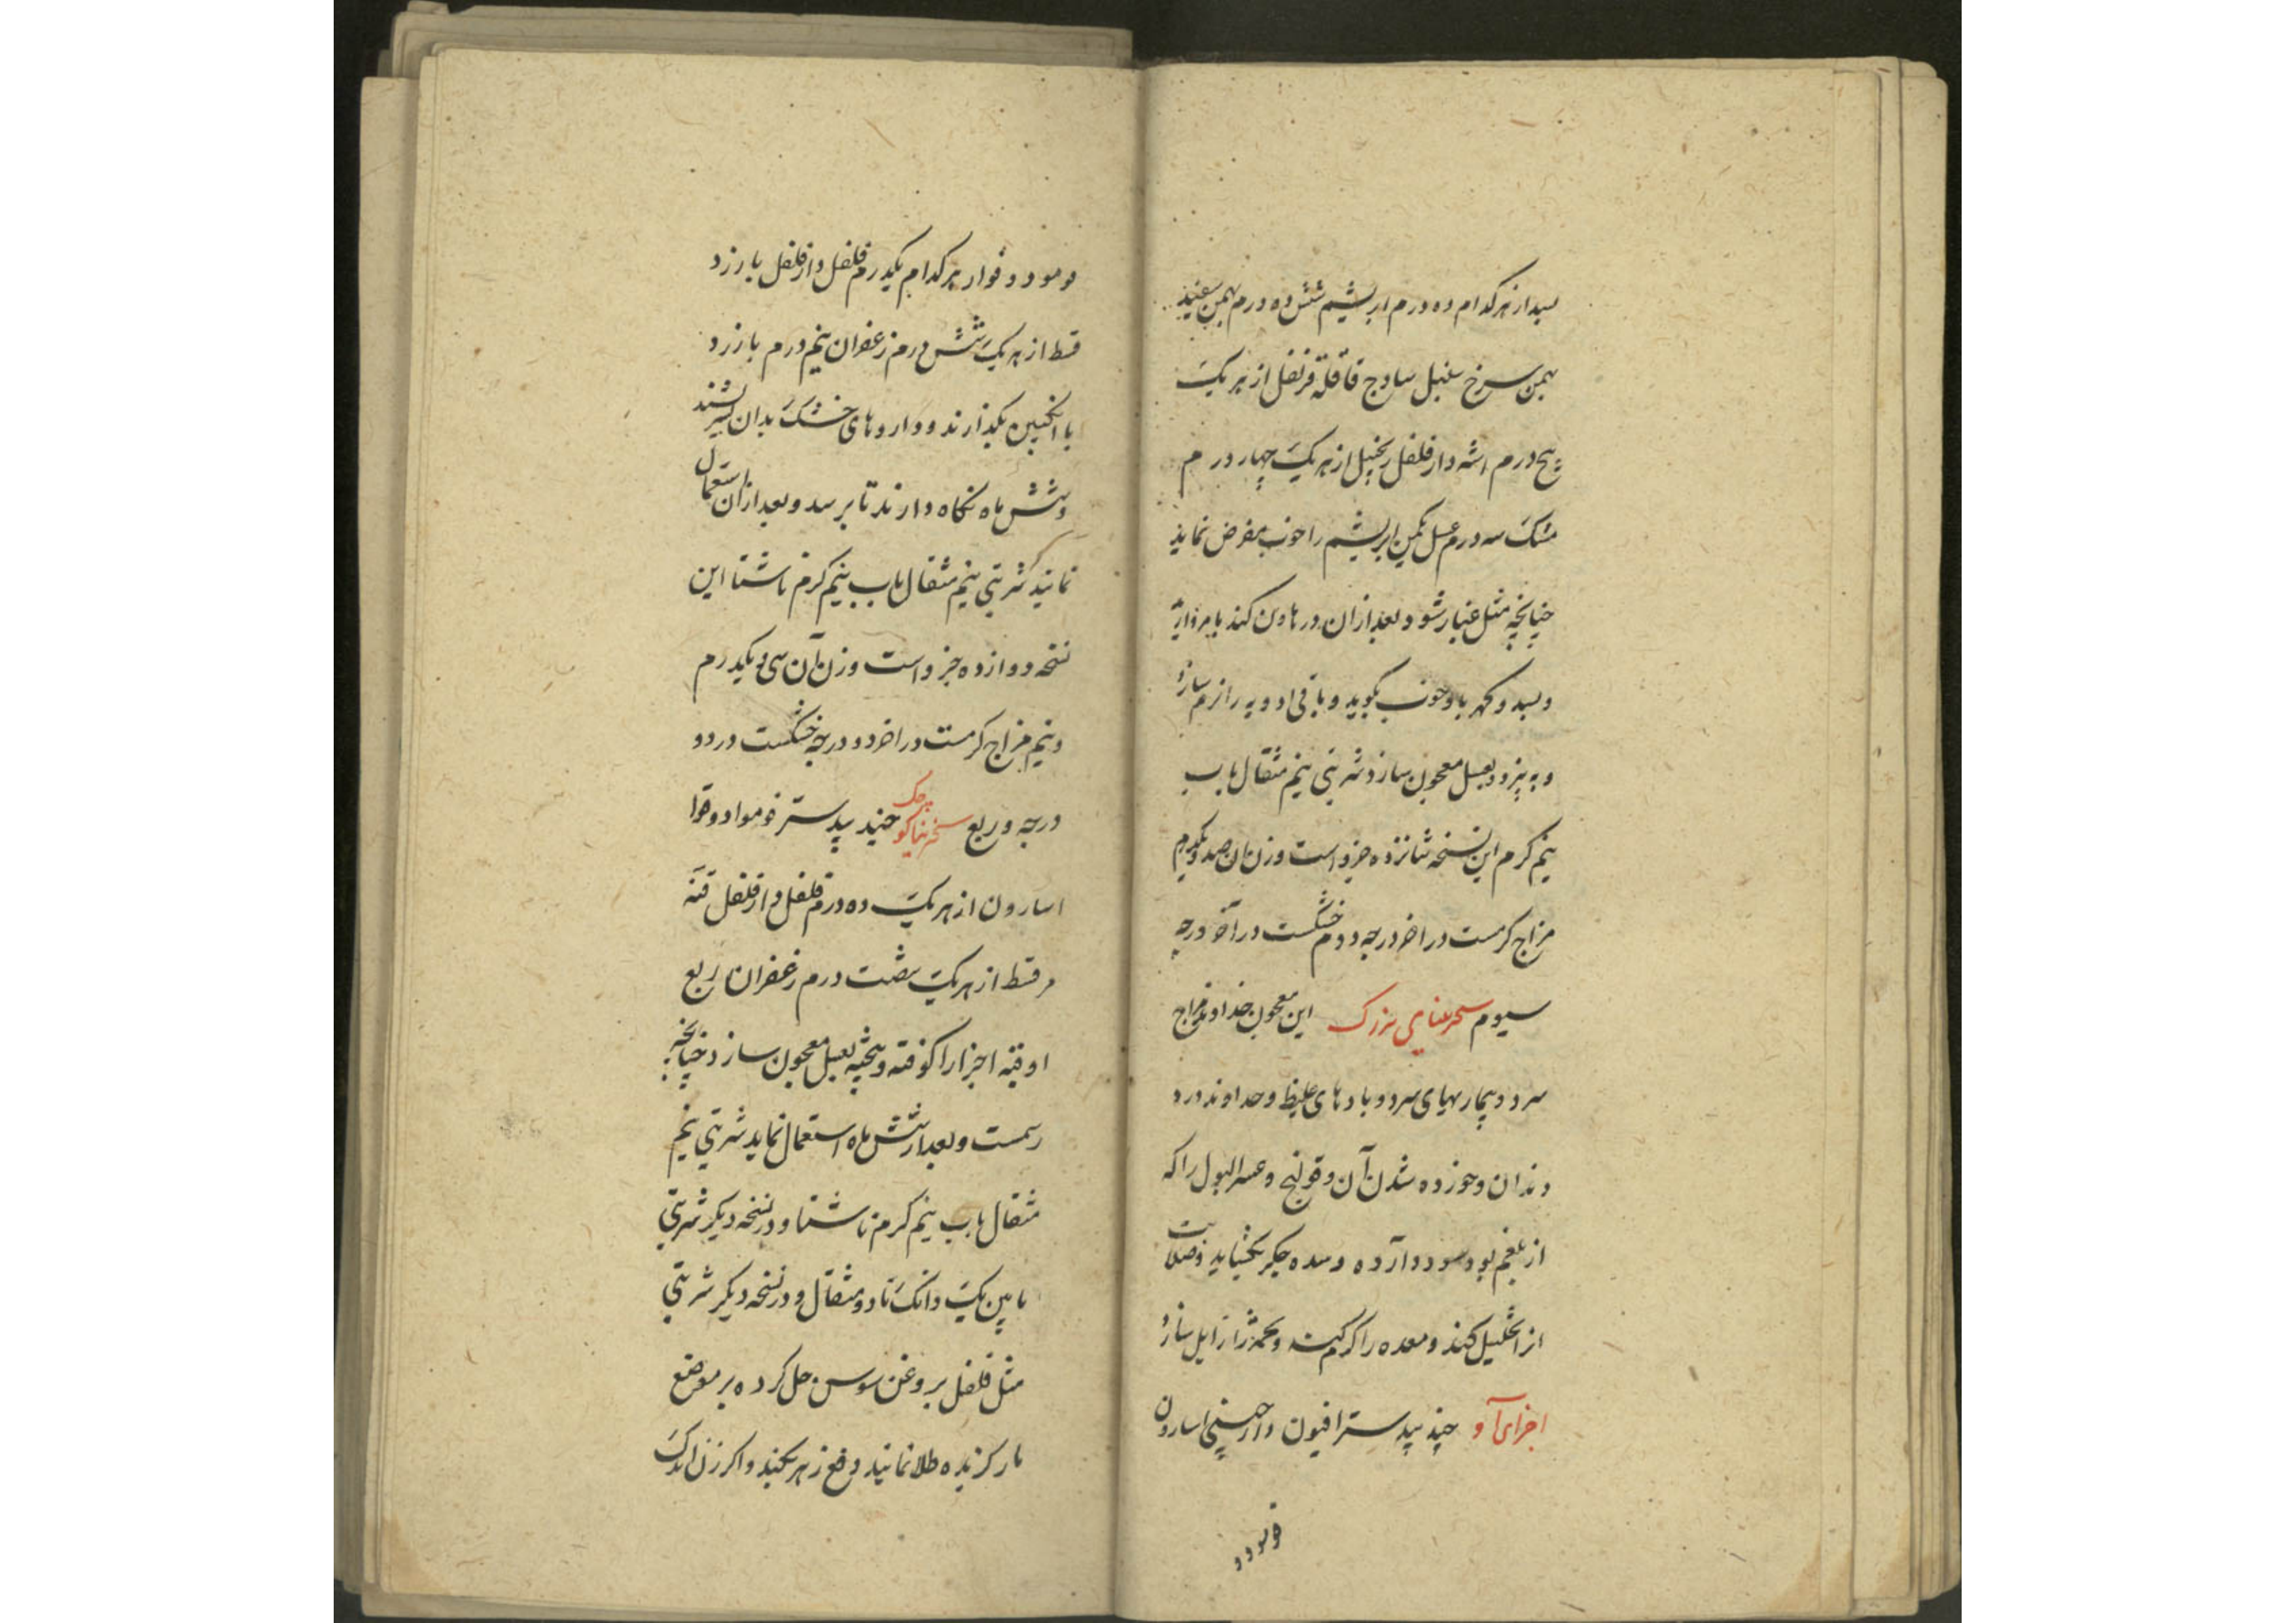 بسد از هر کدام ده درم ابریشم شش ده درم بهمن سفید
بهمن سرخ سنبل سادج قاقله قرنفل از هر یک
پنج درم اشنه دارفلفل زنجبیل از هر یک چهار درم
مشک سه درم عسل یکمن ابریشم را خوب بمقرض نماید
چنانچه مثل غبار شود و بعد از ان در هاون کند با مروارید
و بسد و کهربا و خوب بکوبد و باقی ادویه را نرم سازد
و به پزد و بعسل معجون سازد شربتی نیم مثقال باب
نیم کرم این نسخه شانزده جزو است وزن ان صد و یکدرم
مزاج کرمست در اخر درجه دوم خشکست در آخر درجه
سیوم سجرینای بزرک این معجون خداوند مزاج
سرد و بیماریهای سرد و بادهای غلیظ و خداوند درد
دندان و خورده شدن آن و قولنج و عسر البول را که
از بلغم بود سود دارد و سده جکر بکشاید و صلابت
انرا تحلیل کند و معده را کرم کند و تخمه را زایل سازد
اجزای آن جند بیدستر افیون دارچینی اسارون
فو مو دو
فو مو دوقو از هر کدام یکدرم فلفل دارفلفل بارزد
قسط از هر یک شش درم زعفران نیم درم بارزد
با انکبین بکذارند و داروهای خشک بدان بسرشند
و شش ماه نکاه دارند تا برسد و بعد از ان استعمال
نمایند شربتی نیم مثقال باب نیم کرم ناشتا این
نسخه دوازده جزو است وزن آن سی و یکدرم
و نیم مزاج کرمست در اخر دو درجه خشکست در دو
درجه و ربع سجرینا کوچک جند بیدستر فو موا دوقوا
اسارون از هر یک ده درم فلفل دارفلفل قنه
مر قسط از هر یک شصت درم زعفران ربع
اوقیه اجزا را کوفته و بیخته بعسل معجون سازد چنانچه
رسمست و بعد از شش ماه استعمال نماید شربتی نیم
مثقال باب نیم کرم ناشتا و در نسخه دیکر شربتی
مابین یک دانک تا دو مثقال و در نسخه دیکر شربتی
مثل فلفل بروغن سوسن حل کرده بر موضع
مار کزیده طلا نمایند دفع زهر بکند و اکر زن اندک